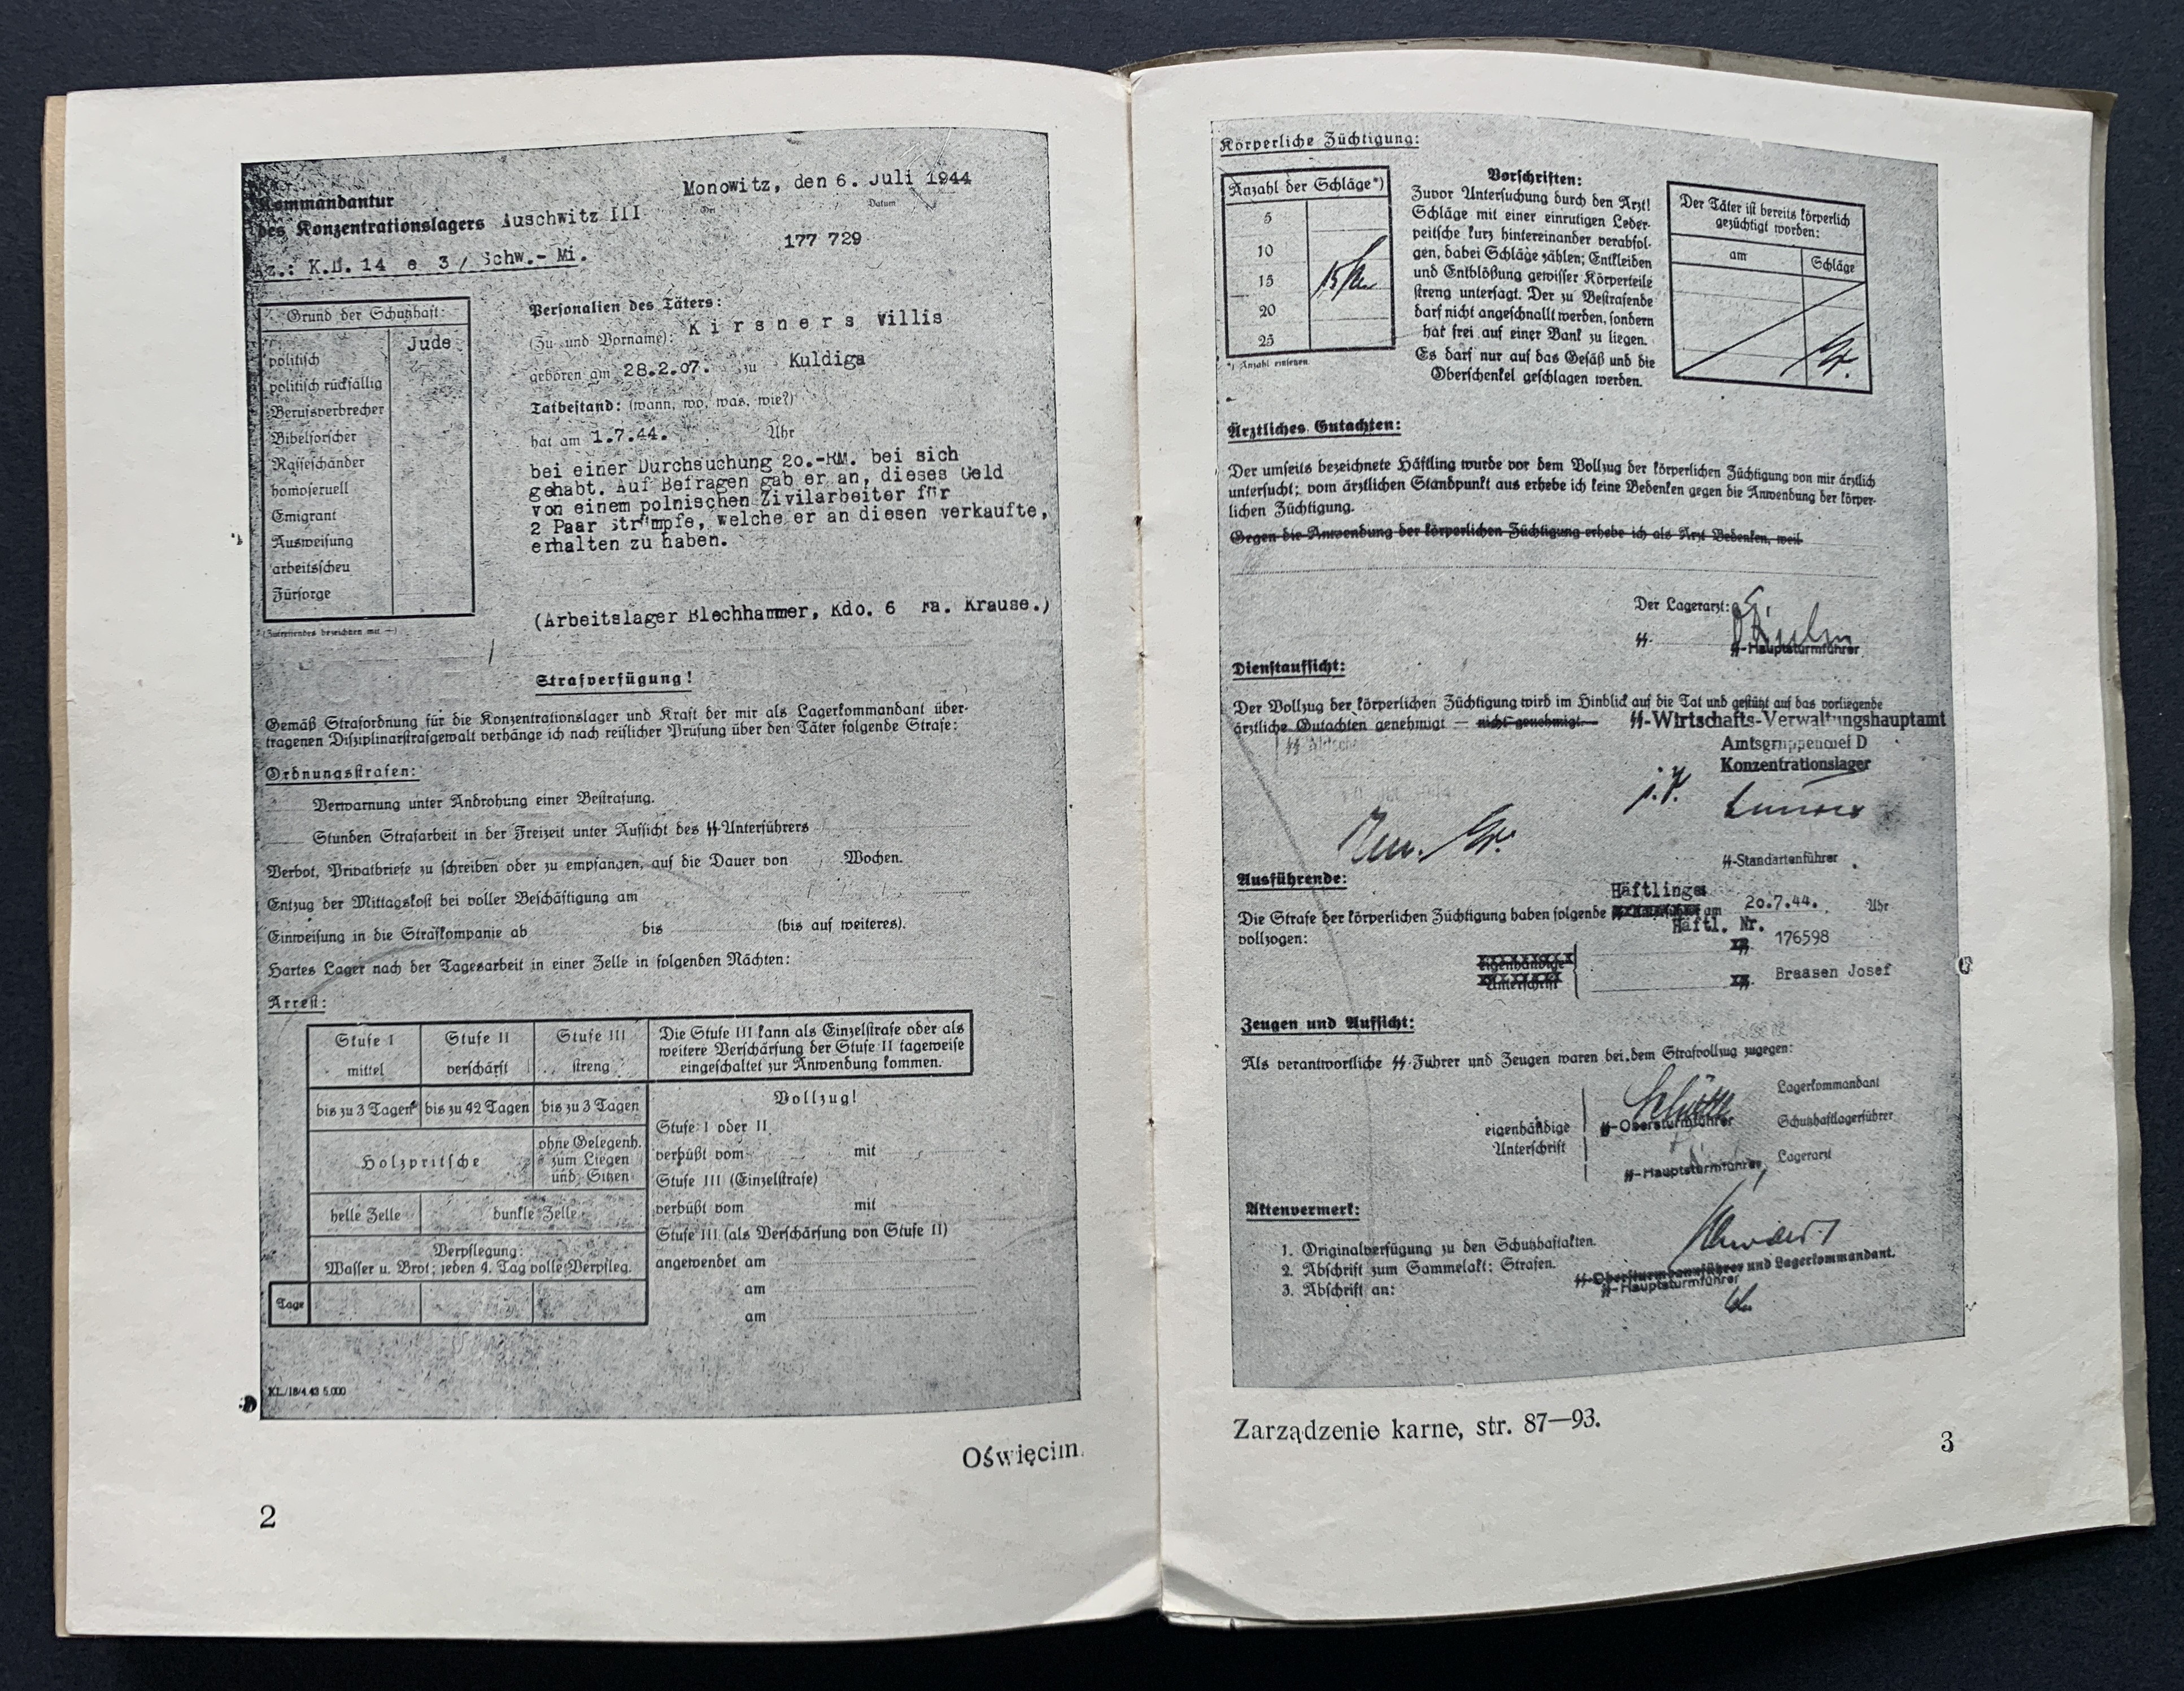 Kommandantur
des Konzentrationslagers Auschwitz III
Monowitz, den 6. Juli 1944
Ort Datum
177 729
Az.: K.L. 14 e 3/ Schw.- Mi.
Grund der Schutzhaft:
Jude
politisch
politisch rückfällig
Berufsverbrecher
Bibelforscher
Rasseschänder
homosexuell
Emigrant
Ausweisung
arbeitsscheu
Fürsorge
*(Zutreffendes bezeichnen mit +)
Personalien des Täters:
(Zu- und Vorname): Kirsners Villis
geboren am 28.2.07. zu Kuldiga
Tatbestand: (wann, wo, was, wie?)
hat am 1.7.44. Uhr
bei einer Durchsuchung 20.-RM. bei sich
gehabt. Auf Befragen gab er an, dieses Geld
von einem polnischen Zivilarbeiter für
2 Paar Strümpfe, welche er an diesen verkaufte,
erhalten zu haben.
(Arbeitslager Blechhammer, Kdo. 6 Fa. Krause.)
Strafverfügung!
Gemäß Strafordnung für die Konzentrationslager und Kraft der mir als Lagerkommandant über-
tragenen Disziplinarstrafgewalt verhänge ich nach reiflicher Prüfung über den Täter folgende Strafe:
Ordnungsstrafen:
Verwarnung unter Androhung einer Bestrafung.
Stunden Strafarbeit in der Freizeit unter Aufsicht des SS-Unterführers
Verbot, Privatbriefe zu schreiben oder zu empfangen, auf die Dauer von Wochen.
Entzug der Mittagskost bei voller Beschäftigung am
Einweisung in die Strafkompanie ab bis (bis auf weiteres).
Hartes Lager nach der Tagesarbeit in einer Zelle in folgenden Nächten:
Arrest:
Stufe I Stufe II Stufe III
mittel verschärft streng
Die Stufe III kann als Einzelstrafe oder als
weitere Verschärfung der Stufe II tageweise
eingeschaltet zur Anwendung kommen.
bis zu 3 Tagen bis zu 42 Tagen bis zu 3 Tagen
Holzpritsche
ohne Gelegenh.
zum Liegen
und Sitzen
helle Zelle dunkle Zelle
Verpflegung:
Wasser u. Brot; jeden 4. Tag volle Verpfleg.
Tage
Vollzug!
Stufe I oder II
verbüßt vom mit
Stufe III (Einzelstrafe)
verbüßt vom mit
Stufe III (als Verschärfung von Stufe II)
angewendet am
am
am
KL/18/4.43 5.000
Oświęcim.
2
Körperliche Züchtigung:
Anzahl der Schläge*)
5
10
15 15
20
25
*) Anzahl einsetzen
Vorschriften:
Zuvor Untersuchung durch den Arzt!
Schläge mit einer einrutigen Leder-
peitsche kurz hintereinander verabfol-
gen, dabei Schläge zählen; Entkleiden
und Entblößung gewisser Körperteile
streng untersagt. Der zu Bestrafende
darf nicht angeschnallt werden, sondern
hat frei auf einer Bank zu liegen.
Es darf nur auf das Gesäß und die
Oberschenkel geschlagen werden.
Der Täter ist bereits körperlich
gezüchtigt worden:
am Schläge
Ärztliches Gutachten:
Der umseits bezeichnete Häftling wurde vor dem Vollzug der körperlichen Züchtigung von mir ärztlich
untersucht; vom ärztlichen Standpunkt aus erhebe ich keine Bedenken gegen die Anwendung der körper-
lichen Züchtigung.
Gegen die Anwendung der körperlichen Züchtigung erhebe ich als Arzt Bedenken, weil
Der Lagerarzt:
SS-
SS-Hauptsturmführer
Dienstaufsicht:
Der Vollzug der körperlichen Züchtigung wird im Hinblick auf die Tat und gestützt auf das vorliegende
ärztliche Gutachten genehmigt — nicht genehmigt. SS-Wirtschafts-Verwaltungshauptamt
Amtsgruppenchef D
Konzentrationslager
i.V.
SS-Standartenführer
Ausführende:
Häftlinge
Die Strafe der körperlichen Züchtigung haben folgende am 20.7.44. Uhr
vollzogen:
Häftl. Nr.
176598
eigenhändige
Unterschrift
Braasen Josef
Zeugen und Aufsicht:
Als verantwortliche SS-Führer und Zeugen waren bei dem Strafvollzug zugegen:
eigenhändige
Unterschrift
Lagerkommandant
SS-Obersturmführer Schutzhaftlagerführer
SS-Hauptsturmführer Lagerarzt
Aktenvermerk:
1. Originalverfügung zu den Schutzhaftakten.
2. Abschrift zum Sammelakt: Strafen.
3. Abschrift an:
SS-Obersturmbannführer und Lagerkommandant.
SS-Hauptsturmführer
Zarządzenie karne, str. 87—93.
3